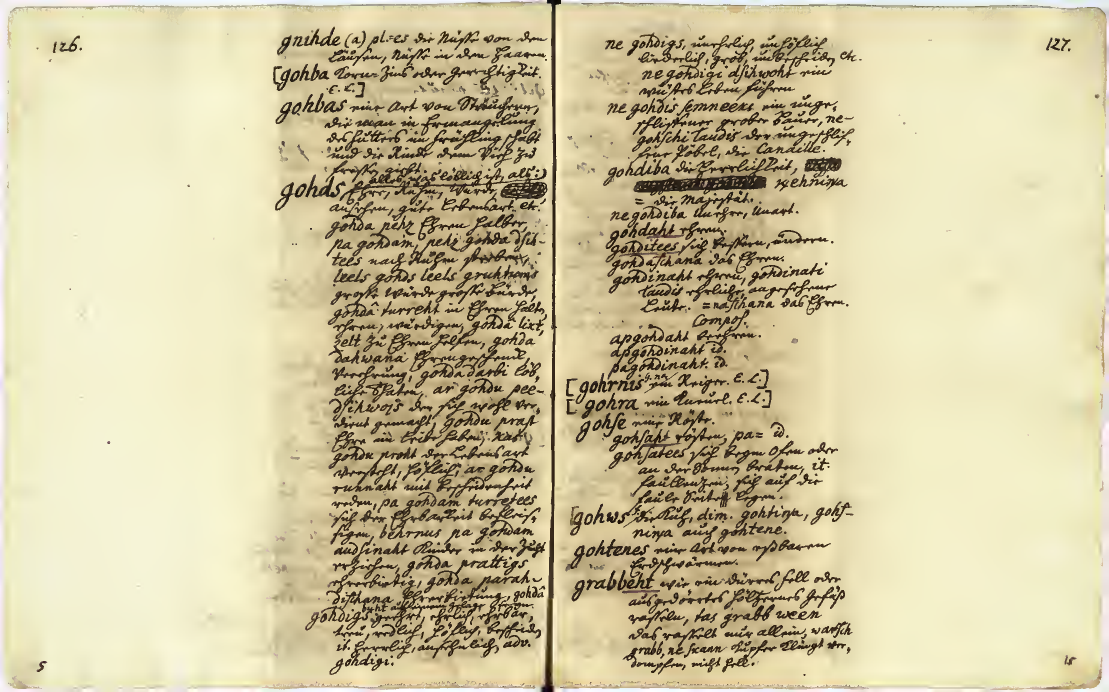 126.
gnihde (a) pl=es die Nüsse von den
Läusen, Nüsse in den Haaren.
[gohba Korn-Zins oder Gerechtigkeit.
E. L.]
gohbas eine Art von Sträuchern,
die man in Ermangelung
des Futters im Frühling schabt
und die Rinde dem Vieh zu
fressen giebt.
alles was löblich ist, als:
gohds Ehre, Ruhm, Würde,
ansehen, gute Lebensart etc.
gohda pehz Ehren halber,
pa gohdam, pehz gohda dsih-
tees nach Ruhm streben,
leels gohds leels gruhtums
große Würde große Bürde,
gohdâ turreht in Ehren halten,
ehren, würdigen, gohdâ lixt,
zelt zu Ehren helfen, gohda
dahwana Ehrengeschenk,
Verehrung, gohda darbi löb-
liche Thaten, ar gohdu pee-
dsihwojs der sich wohl ver-
dient gemacht, gohdu prast
Ehre im Leibe haben, kas
gohdu proht der Lebensart
versteht, höflich, ar gohdu
runnaht mit Bescheidenheit
reden, pa gohdam turretees
sich der Ehrbarkeit befleis-
sigen, behrnus pa gohdam
audsinaht Kinder in der Zucht
erziehen, gohda prattigs
ehrerbietig, gohda parah-
dischana Ehrerbietung, gohdâ
gohdigs geehrt, ehrlich, ehrbar,
treu, redlich, höflich, bescheiden
it. herrlich, ansehnlich, adv.
gohdigi.
5
127.
ne gohdigs, unehrlich, unhöflich
liederlich, grob, unbescheiden etc.
ne gohdigi dsihwoht ein
wüstes Leben führen
ne gohdis semneeks ein unge-
schliffener grober Bauer, ne-
gohschi laudis der ungeschlif-
fene Pöbel, die Canaille.
gohdiba die Herrlichkeit,
kehniņa
= die Majestät.
ne gohdiba Unehre, Unart.
gohdaht ehren.
gohditees sich bessern, ändern.
gohdaschana das Ehren.
gohdinaht ehren, gohdinati
laudis ehrliche, angesehene
Leute. =naschana das Ehren.
Compos.
apgohdaht beehren.
apgohdinaht id.
pagohdinaht. id.
[gohrnis ein Reiger. E. L.]
[gohra ein Kneuel. E. L.]
gohse eine Röste.
gohsaht rösten, pa= id.
gohsatees sich beym Ofen oder
an der Sonne braten, it.
faullenzen, sich auf die
faule Seite legen.
[gohws die Kuh, dim. gohtiņa, gohs-
niņa auch gohtene.
gohtenes eine Art von eßbaren
Erdschwämmen.
grabbeht wie ein dürres Fell oder
ausgedörrtes hölzernes Gefäß
rasseln, tas grabb ween
das rasselt nur allein, warsch
grabb, ne skann Kupfer klingt ver-
dompfen, nicht hell.
15